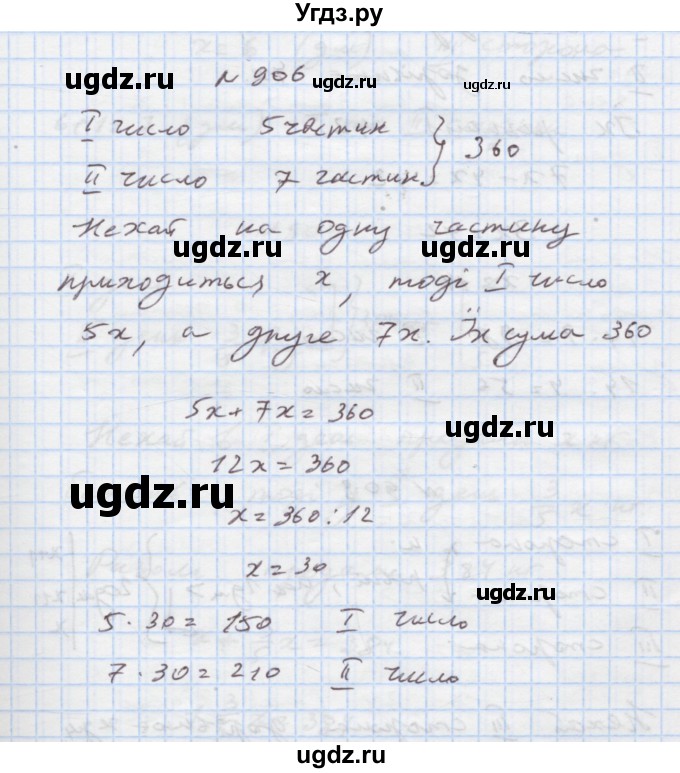 Угдз.ру
ugdz.ru
N 906
ugdz.ru
ugdz.ru
I число 5 частин
360
II число 7 частин
Нехай на одну частину
ugdz.ru
ugdz.ru
приходиться x, тоді I число
5x, а друге 7x. Їх сума 360
ugdz.ru
5x + 7x = 360
ugdz.ru
12x = 360
ugdz.ru
x = 360 : 12
x = 30
ugdz.ru
5 · 30 = 150 I число
7 · 30 = 210 II число
ugdz.ru